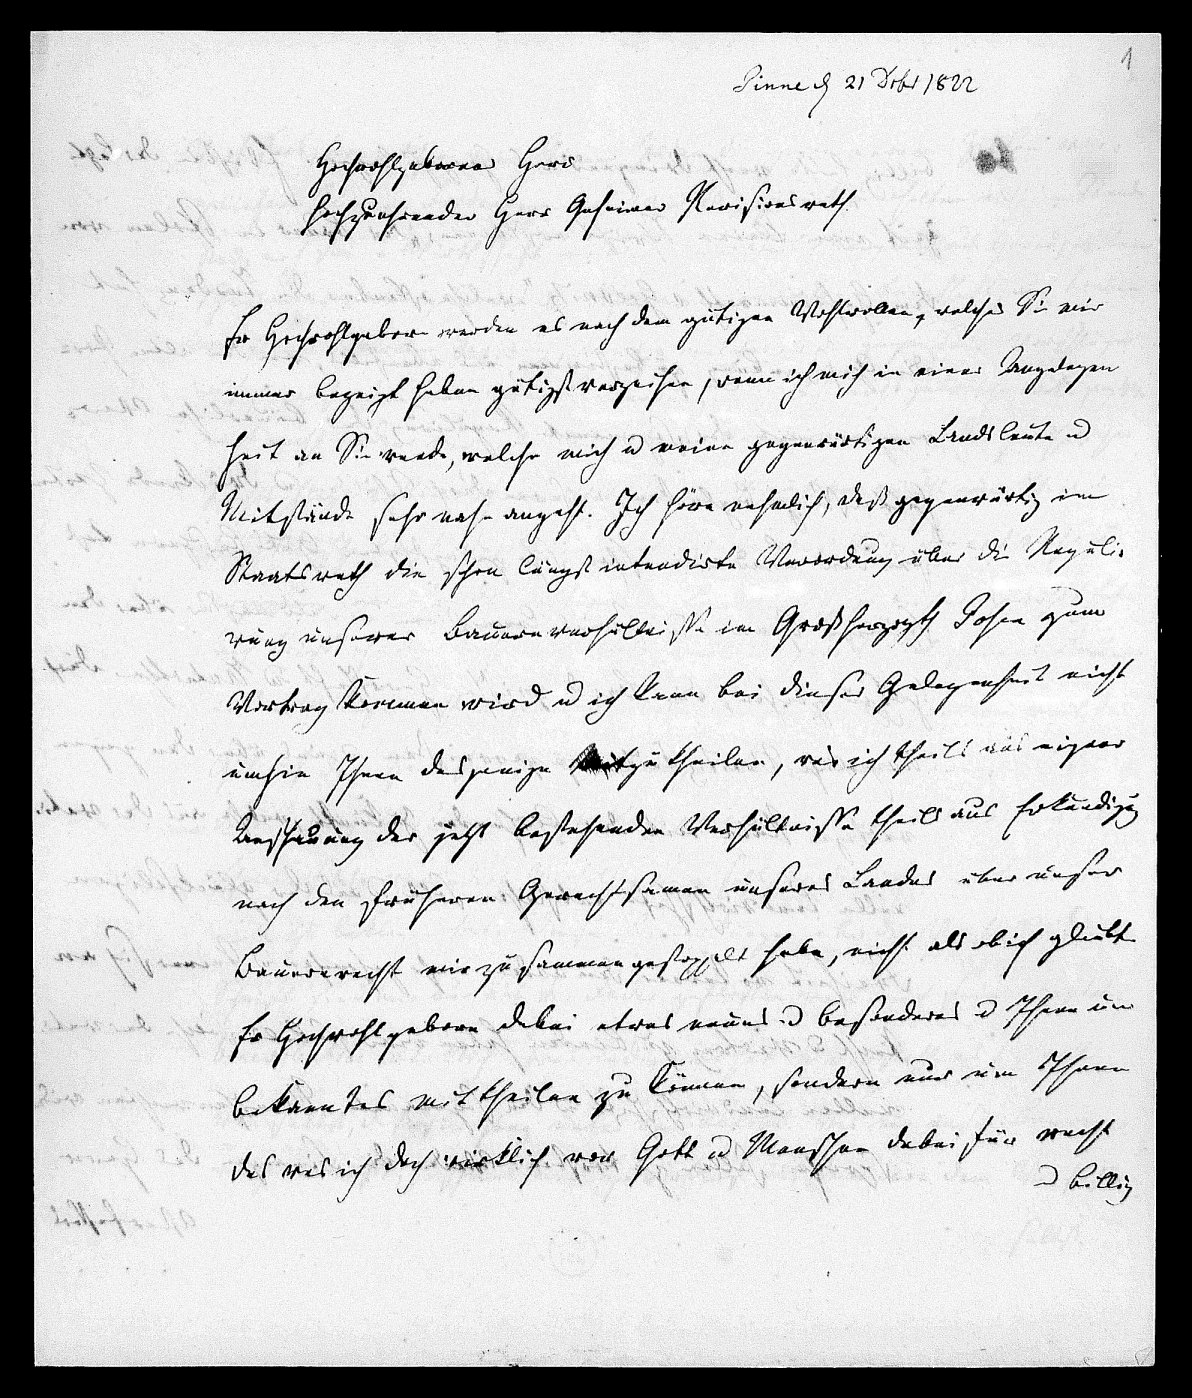 1
Pinne d 21 Dcbr 1822
Hochwohlgeborner Herr
Hochzuehrender Herr Geheimer Revisionsrath
Ew Hochwohlgeborn werden es nach dem gütigen Wohlwollen, welches Sie mir
immer bezeigt haben gütigst verzeihen, wenn ich mich in einer Angelegen
heit an Sie wende, welche mich u meine gegenwärtigen Landsleute u
Mitstände sehr nahe angeht. Ich höre nehmlich, daß gegenwärtig im
Staatsrath die schon längst intendirte Verordnung über die Reguli-
rung unserer Bauernverhältnisse im Großherzogth Posen zum
Vortrag kommen wird u ich kann bei dieser Gelegenheit nicht
umhin Ihnen dasjenige mitzutheilen, was ich theils aus eigner
Anschauung der jetzt bestehenden Verhältnisse theils aus Erkundigung
nach den früheren Gerechtsamen unseres Landes über unser
Bauernrecht mir zusammengestoppelt habe, nicht als ob ich glaubte
Ew Hochwohlgeborn dabei etwas neues u besonderes u Ihnen un
bekanntes mittheilen zu können, sondern nur um Ihnen
das was ich doch wirklich vor Gott u Menschen dabei für recht
u billig